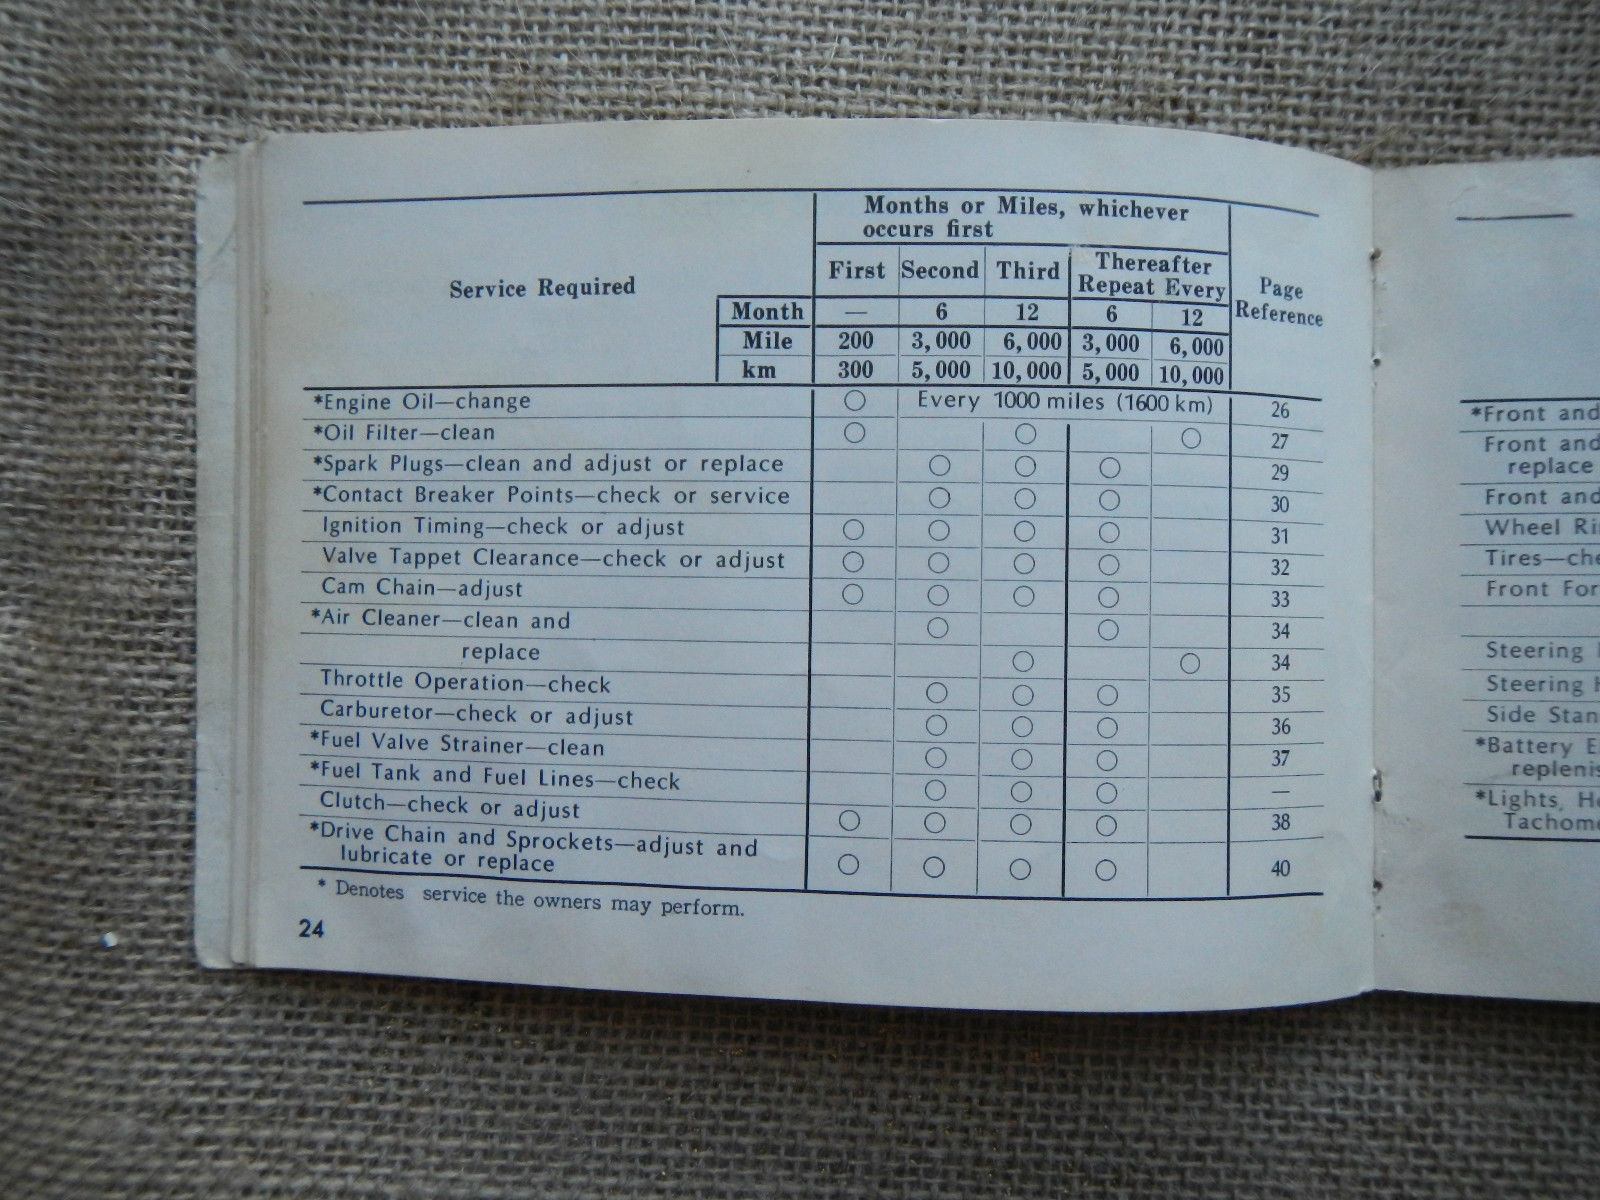 Months or Miles, whichever
occurs first
Service Required
First Second Third Thereafter
Repeat Every
Page
Reference
Month — 6 12 6 12
Mile 200 3,000 6,000 3,000 6,000
km 300 5,000 10,000 5,000 10,000
*Engine Oil—change ○ Every 1000 miles (1600 km) 26
*Oil Filter—clean ○ ○ ○ 27
*Spark Plugs—clean and adjust or replace ○ ○ ○ 29
*Contact Breaker Points—check or service ○ ○ ○ 30
Ignition Timing—check or adjust ○ ○ ○ ○ 31
Valve Tappet Clearance—check or adjust ○ ○ ○ ○ 32
Cam Chain—adjust ○ ○ ○ ○ 33
*Air Cleaner—clean and ○ ○ 34
replace ○ ○ 34
Throttle Operation—check ○ ○ ○ 35
Carburetor—check or adjust ○ ○ ○ 36
*Fuel Valve Strainer—clean ○ ○ ○ 37
*Fuel Tank and Fuel Lines—check ○ ○ ○ —
Clutch—check or adjust ○ ○ ○ ○ 38
*Drive Chain and Sprockets—adjust and
lubricate or replace ○ ○ ○ ○ 40
* Denotes service the owners may perform.
24
*Front and
Front and
replace
Front and
Wheel
Tires—
Front
Steering
Steering
Side
*Battery
*Lights,